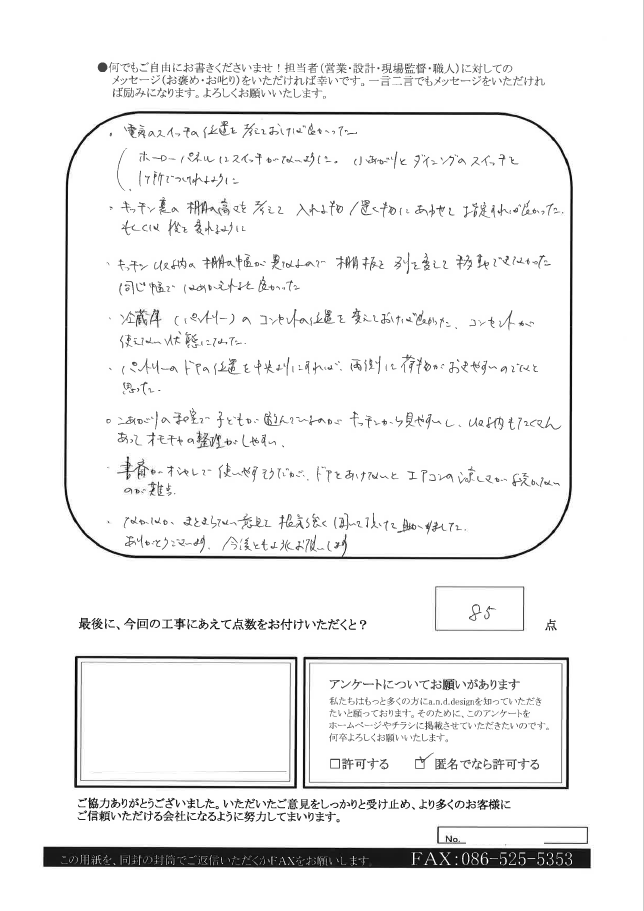 ●何でもご自由にお書きくださいませ！担当者（営業・設計・現場監督・職人）に対しての
メッセージ（お褒め・お叱り）をいただければ幸いです。一言二言でもメッセージをいただけれ
ば励みになります。よろしくお願いいたします。
・電気のスイッチの位置を考えておけば良かった
（ホーローパネルにスイッチがないように。小あがりとダイニングのスイッチを
1ヶ所でつけれるように
・キッチン裏の棚の高さを考えて 入れる物/置く物にあわせて 指定すれば良かった.
もしくは後で変えれるように
・キッチン収納の棚の幅が異なるので 棚板を別を変えて移動できなかった
同じ幅で はめかえれると良かった
・冷蔵庫（パントリー）のコンセントの位置を変えておけば良かった、コンセントが
使えない状態になった.
・パントリーのドアの位置を中央よりにすれば、両側に荷物がおきやすいのではと
思った.
○こあがりの和室で子どもが遊んでいるのが キッチンから見やすいし、収納もたくさん
あってオモチャの整理がしやすい、
・書斎がオシャレで使いやすそうだが、ドアをあけないと エアコンの涼しさが続かない
のが難点
・なかなか、まとまらない意見を根気強く聞いて頂いて助かりました.
ありがとうございます、今後ともよろしくお願いします
最後に、今回の工事にあえて点数をお付けいただくと？
85
点
アンケートについてお願いがあります
私たちはもっと多くの方にa.n.d.designを知っていただき
たいと願っております。そのために、このアンケートを
ホームページやチラシに掲載させていただきたいのです。
何卒よろしくお願いいたします。
□許可する ☑匿名でなら許可する
ご協力ありがとうございました。いただいたご意見をしっかりと受け止め、より多くのお客様に
ご信頼いただける会社になるように努力してまいります。
No.
この用紙を、同封の封筒でご返信いただくかFAXをお願いします。 FAX:086-525-5353